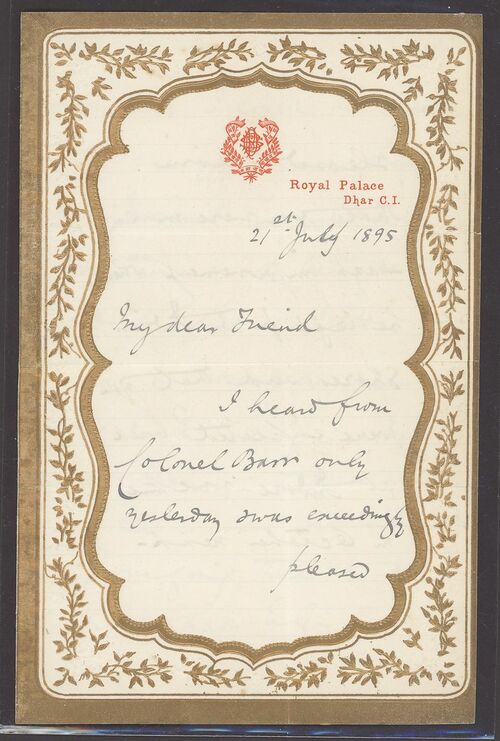 Royal Palace
Dhar C.I.
21st July 1895
My dear Friend
I heard from
Colonel Barr only
yesterday & was exceedingly
pleased